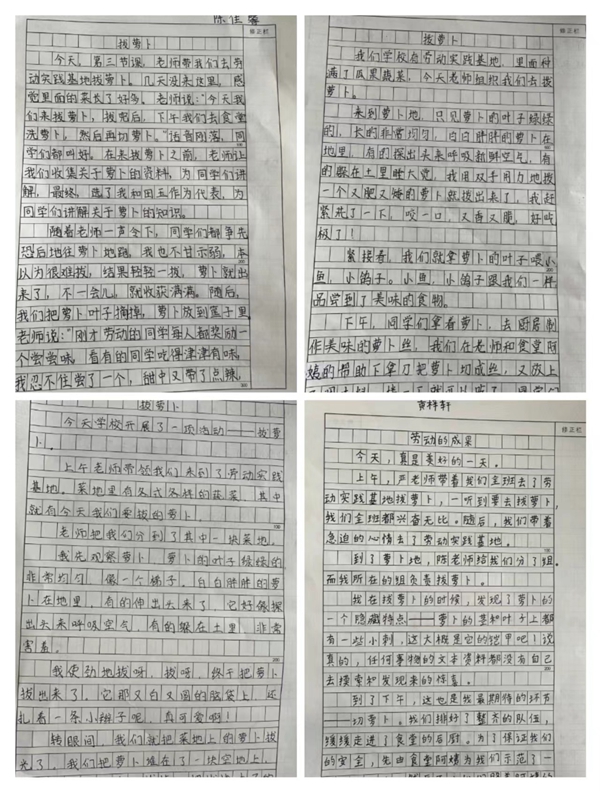 陈佳馨
修正栏
拔萝卜
今天，第三节课，老师带我们去劳
动实践基地拔萝卜。几天没来这里，感
觉里面的菜长了好多。老师说：“今天我
们来拔萝卜，拔完后，下午我们去食堂
洗萝卜，然后再切萝卜。”话音刚落，同
学们都叫好。在来拔萝卜之前，老师让
我们收集关于萝卜的资料，为同学们讲
解，最终，选了我和田玉作为代表，为
同学们讲解关于萝卜的知识。
随着老师一声令下，同学们都争先
恐后地往萝卜地跑。我也不甘示弱，本
以为很难拔，结果轻轻一拔，萝卜就出
来了，不一会儿，就收获满满。随后，
我们把萝卜叶子摘掉，萝卜放到篮子里
老师说：“刚才劳动的同学每人都奖励一
个尝尝味，看有的同学吃得津津有味，
我忍不住尝了一个，甜中又带了点辣，
修正栏
拔萝卜
我们学校有劳动实践基地，里面种
满了瓜果蔬菜，今天老师组织我们去拔
萝卜。
来到萝卜地，只见萝卜的叶子绿绿
的，长的非常均匀，白白胖胖的萝卜在
地里，有的探出头来呼吸新鲜空气，有
的躲在土里睡大觉，我用双手用力地拔
一个又肥又矮的萝卜就拔出来了，我赶
紧洗了一下，咬一口，又香又脆，好吃
极了！
紧接着，我们就拿萝卜的叶子喂小
鱼，小鸽子。小鱼，小鸽子跟我们一样
品尝到了美味的食物。
下午，同学们拿着萝卜，去厨房制
作美味的萝卜丝，我们在老师和食堂阿
姨的帮助下拿刀把萝卜切成丝，又放上
拔萝卜
今天学校开展了一项活动——拔萝
卜。
上午老师带领我们来到了劳动实践
基地。菜地里有各式各样的蔬菜，其中
就有今天我们要拔的萝卜。
老师把我们分到了其中一块菜地。
我先观察萝卜，萝卜的叶子绿绿的
非常均匀，像一个梯子，白白胖胖的萝
卜在地里，有的伸出去来了，它好像探
出头来呼吸空气，有的躲在土里，非常
害羞。
我使劲地拔呀，拔呀，终于把萝卜
拔出来了，它那又白又圆的脑袋上，还
扎着一条小辫子呢，真可爱啊！
转眼间，我们就把菜地上的萝卜拔
光了，我们把萝卜堆在了一块空地上，
黄梓轩
修正栏
劳动的成果
今天，真是美好的一天。
上午，严老师带着我们全班去了劳
动实践基地拔萝卜，一听到要去拔萝卜，
我们全班都兴奋无比。随后，我们带着
急迫的心情去了劳动实践基地。
到了萝卜地，陈老师给我们分了组。
而我所在的组负责拔萝卜。
我在拔萝卜的时候，发现了萝卜的
一个隐藏特点——萝卜的茎和叶子上都
有一些小刺，这大概是它的铠甲吧！说
真的，任何事物的文本资料都没有自己
去摸索和发现来的惊喜。
到了下午，这也是我最期待的环节
——切萝卜。我们排好了整齐的队伍，
缓缓走进了食堂的后厨。为了保证我们
的安全，先由食堂阿姨为我们示范了一